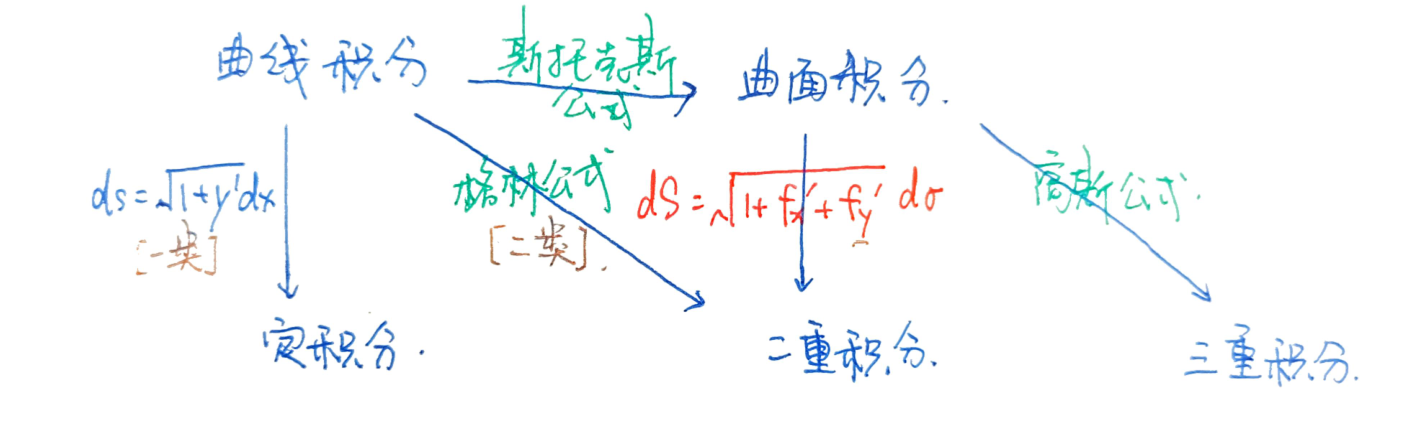 曲线积分
斯托克斯
公式
曲面积分.
ds=√1+y'dx
[一类]
格林公式
[二类].
dS=√1+fx'+fy' dσ
高斯公式.
定积分.
二重积分.
三重积分.